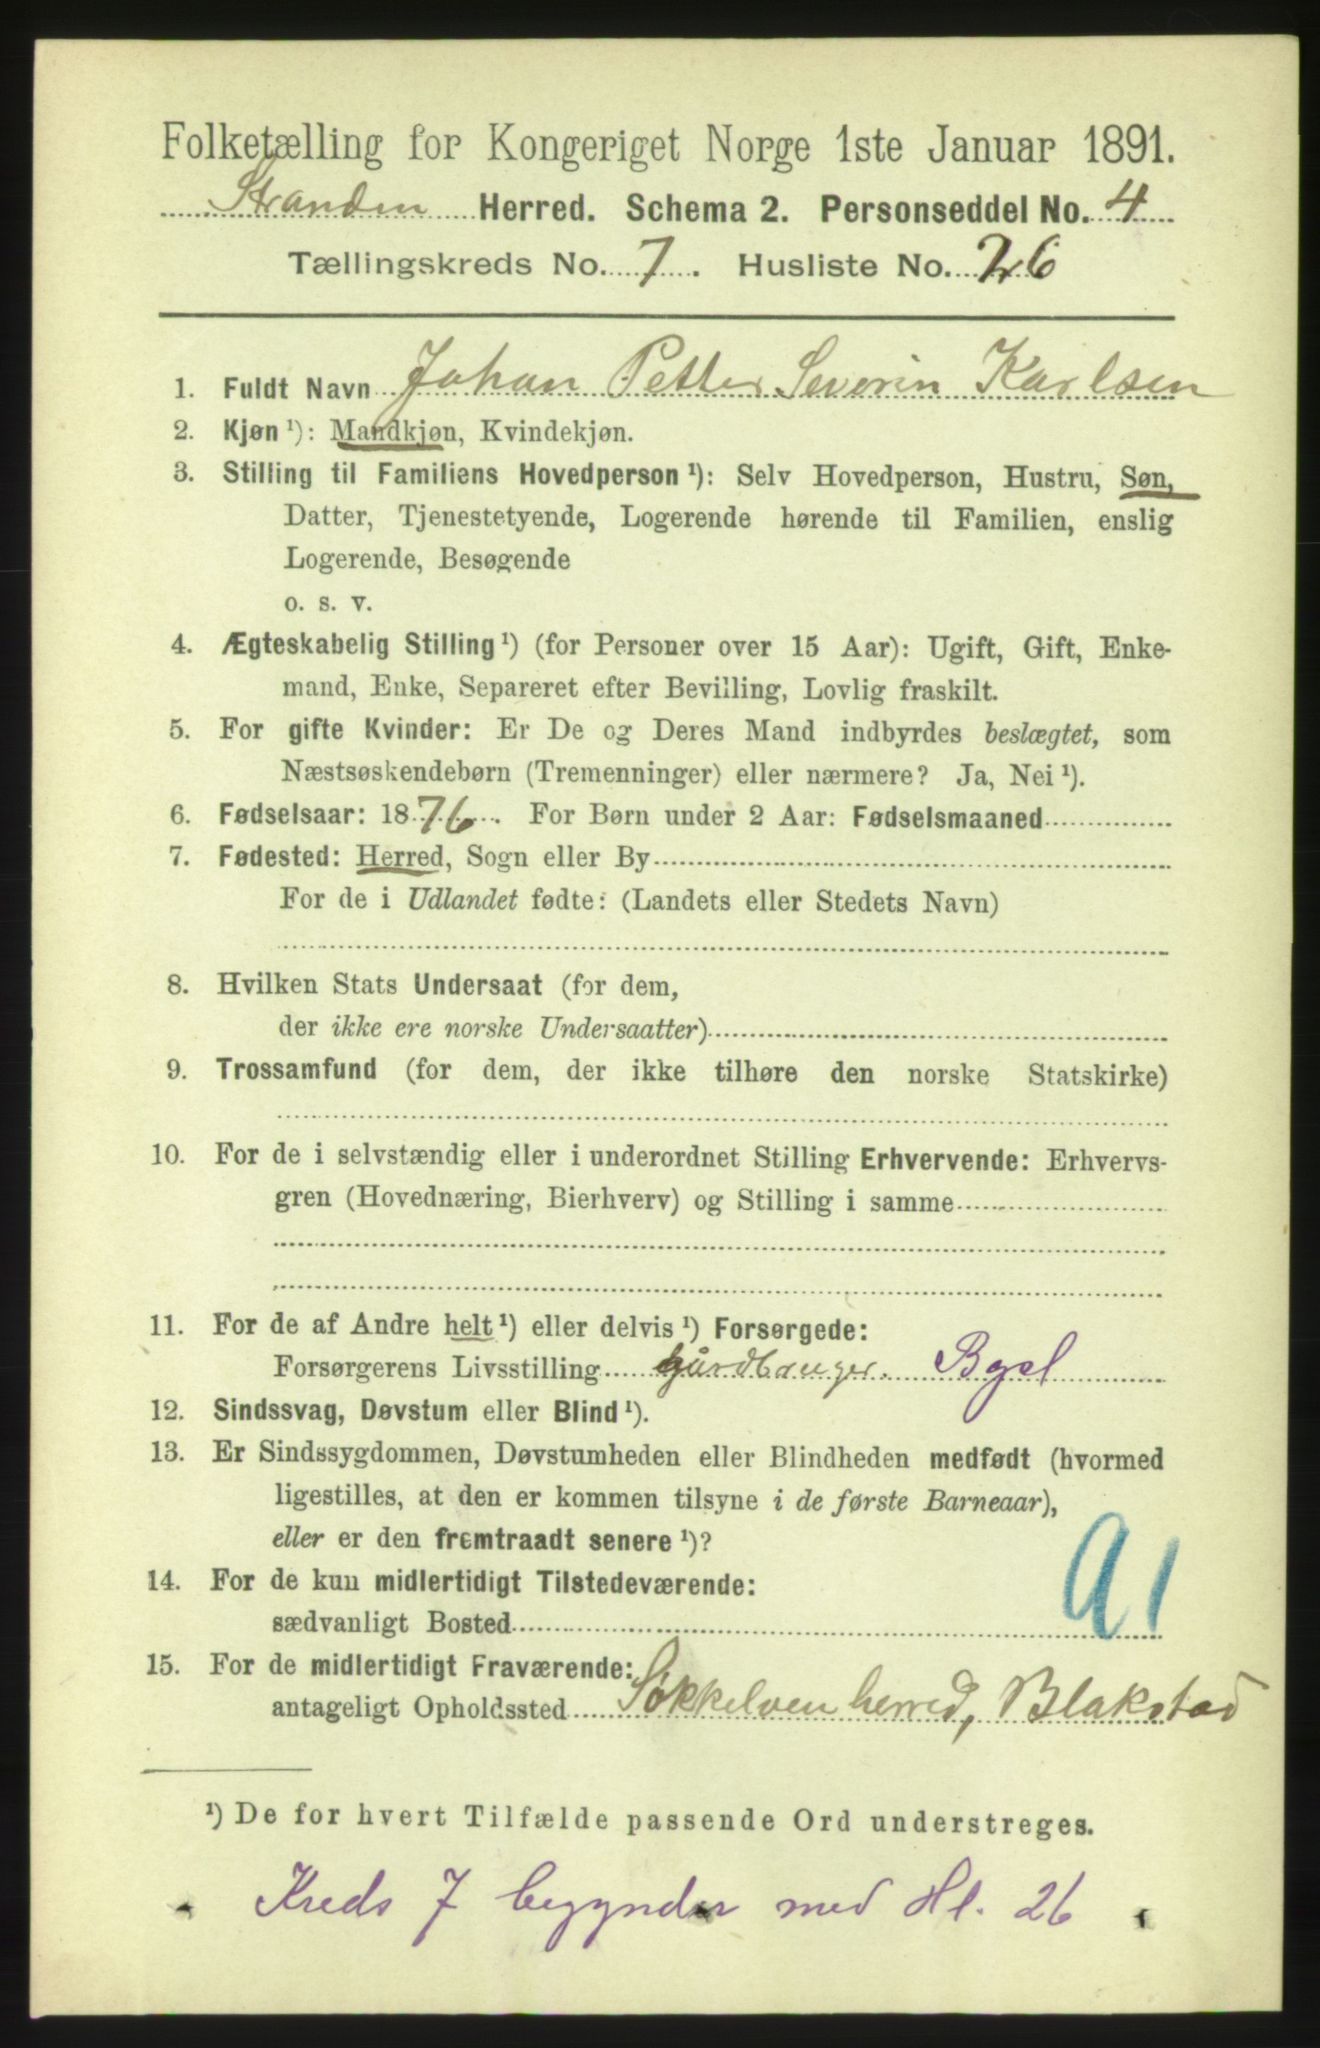 Folketælling for Kongeriget Norge 1ste Januar 1891.
Stranden Herred. Schema 2. Personseddel No. 4
Tællingskreds No. 7. Husliste No. 26
1. Fuldt Navn Johan Petter Severin Karlsen
2. Kjøn ¹): Mandkjøn, Kvindekjøn.
3. Stilling til Familiens Hovedperson ¹): Selv Hovedperson, Hustru, Søn,
Datter, Tjenestetyende, Logerende hørende til Familien, enslig
Logerende, Besøgende
o. s. v.
4. Ægteskabelig Stilling ¹) (for Personer over 15 Aar): Ugift, Gift, Enke-
mand, Enke, Separeret efter Bevilling, Lovlig fraskilt.
5. For gifte Kvinder: Er De og Deres Mand indbyrdes beslægtet, som
Næstsøskendebørn (Tremenninger) eller nærmere? Ja, Nei ¹).
6. Fødselsaar: 1876. For Børn under 2 Aar: Fødselsmaaned
7. Fødested: Herred, Sogn eller By
For de i Udlandet fødte: (Landets eller Stedets Navn)
8. Hvilken Stats Undersaat (for dem,
der ikke ere norske Undersaatter)
9. Trossamfund (for dem, der ikke tilhøre den norske Statskirke)
10. For de i selvstændig eller i underordnet Stilling Erhvervende: Erhvervs-
gren (Hovednæring, Bierhverv) og Stilling i samme
11. For de af Andre helt ¹) eller delvis ¹) Forsørgede:
Forsørgerens Livsstilling gårdbruger. Bgsl
12. Sindssvag, Døvstum eller Blind ¹).
13. Er Sindssygdommen, Døvstumheden eller Blindheden medfødt (hvormed
ligestilles, at den er kommen tilsyne i de første Barneaar),
eller er den fremtraadt senere ¹)?
14. For de kun midlertidigt Tilstedeværende:
sædvanligt Bosted
91
15. For de midlertidigt Fraværende:
antageligt Opholdssted Søkkelven herred, Blakstad
¹) De for hvert Tilfælde passende Ord understreges.
Kreds 7 begynder med Hl. 26